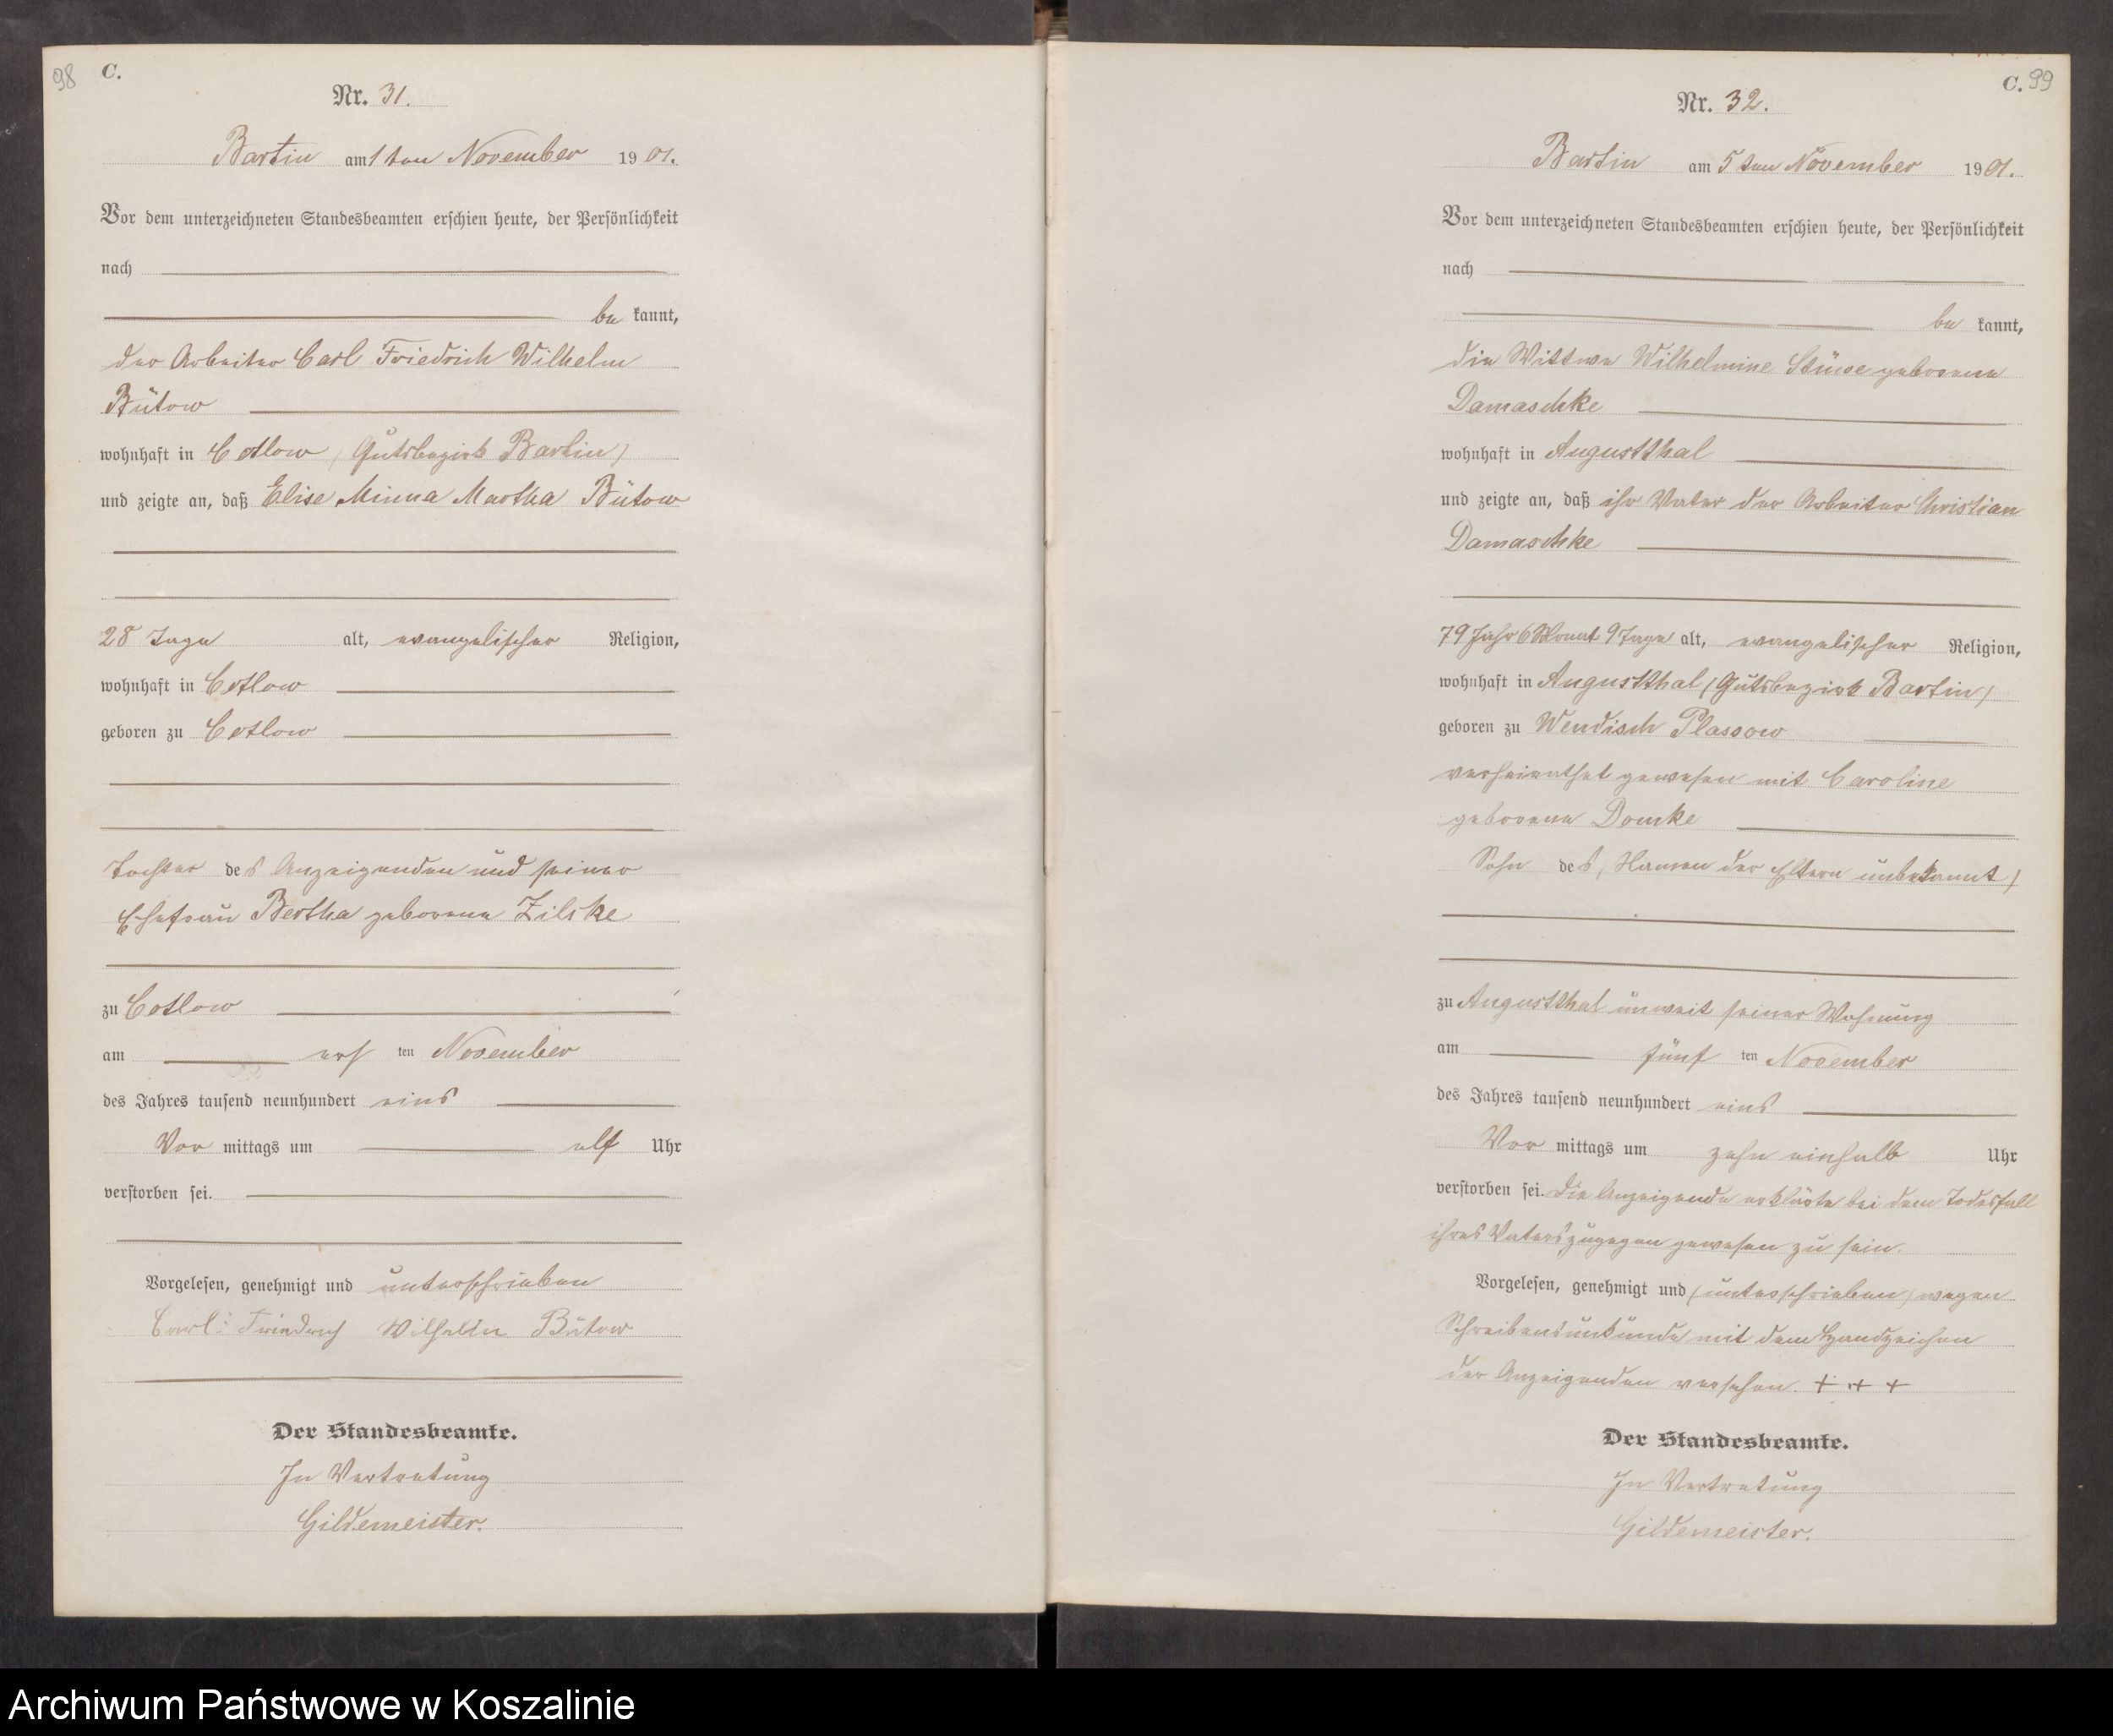 98
C.
Nr. 31.
Bartin am 1ten November 1901.
Vor dem unterzeichneten Standesbeamten erschien heute, der Persönlichkeit
nach
be kannt,
der Arbeiter Carl Friedrich Wilhelm
Bütow
wohnhaft in Cotlow (Gutsbezirk Bartin)
und zeigte an, daß Elise Minna Martha Bütow
28 Tage alt, evangelischer Religion,
wohnhaft in Cotlow
geboren zu Cotlow
Tochter des Anzeigenden und seiner
Ehefrau Bertha geborene Zilske
zu Cotlow
am ersten November
des Jahres tausend neunhundert eins
Vor mittags um elf Uhr
verstorben sei.
Vorgelesen, genehmigt und unterschrieben
Carl Friedrich Wilhelm Bütow
Der Standesbeamte.
In Vertretung
Gildemeister.
C. 99
Nr. 32.
Bartin am 5ten November 1901.
Vor dem unterzeichneten Standesbeamten erschien heute, der Persönlichkeit
nach
be kannt,
die Wittwe Wilhelmine Stüwe geborene
Damaschke
wohnhaft in Augustthal
und zeigte an, daß ihr Vater der Arbeiter Christian
Damaschke
79 Jahr 6 Monat 9 Tage alt, evangelischer Religion,
wohnhaft in Augustthal (Gutsbezirk Bartin)
geboren zu Wendisch Plassow
verheirathet gewesen mit Caroline
geborene Domke
Sohn des (Namen der Eltern unbekannt)
zu Augustthal unweit seiner Wohnung
am fünften November
des Jahres tausend neunhundert eins
Vor mittags um zehn einhalb Uhr
verstorben sei. Die Anzeigende erklärte bei dem Todesfall
ihres Vaters zugegen gewesen zu sein.
Vorgelesen, genehmigt und (unterschrieben) wegen
Schreibensunkunde mit dem Handzeichen
der Anzeigenden versehen. + + +
Der Standesbeamte.
In Vertretung
Gildemeister.
Archiwum Państwowe w Koszalinie